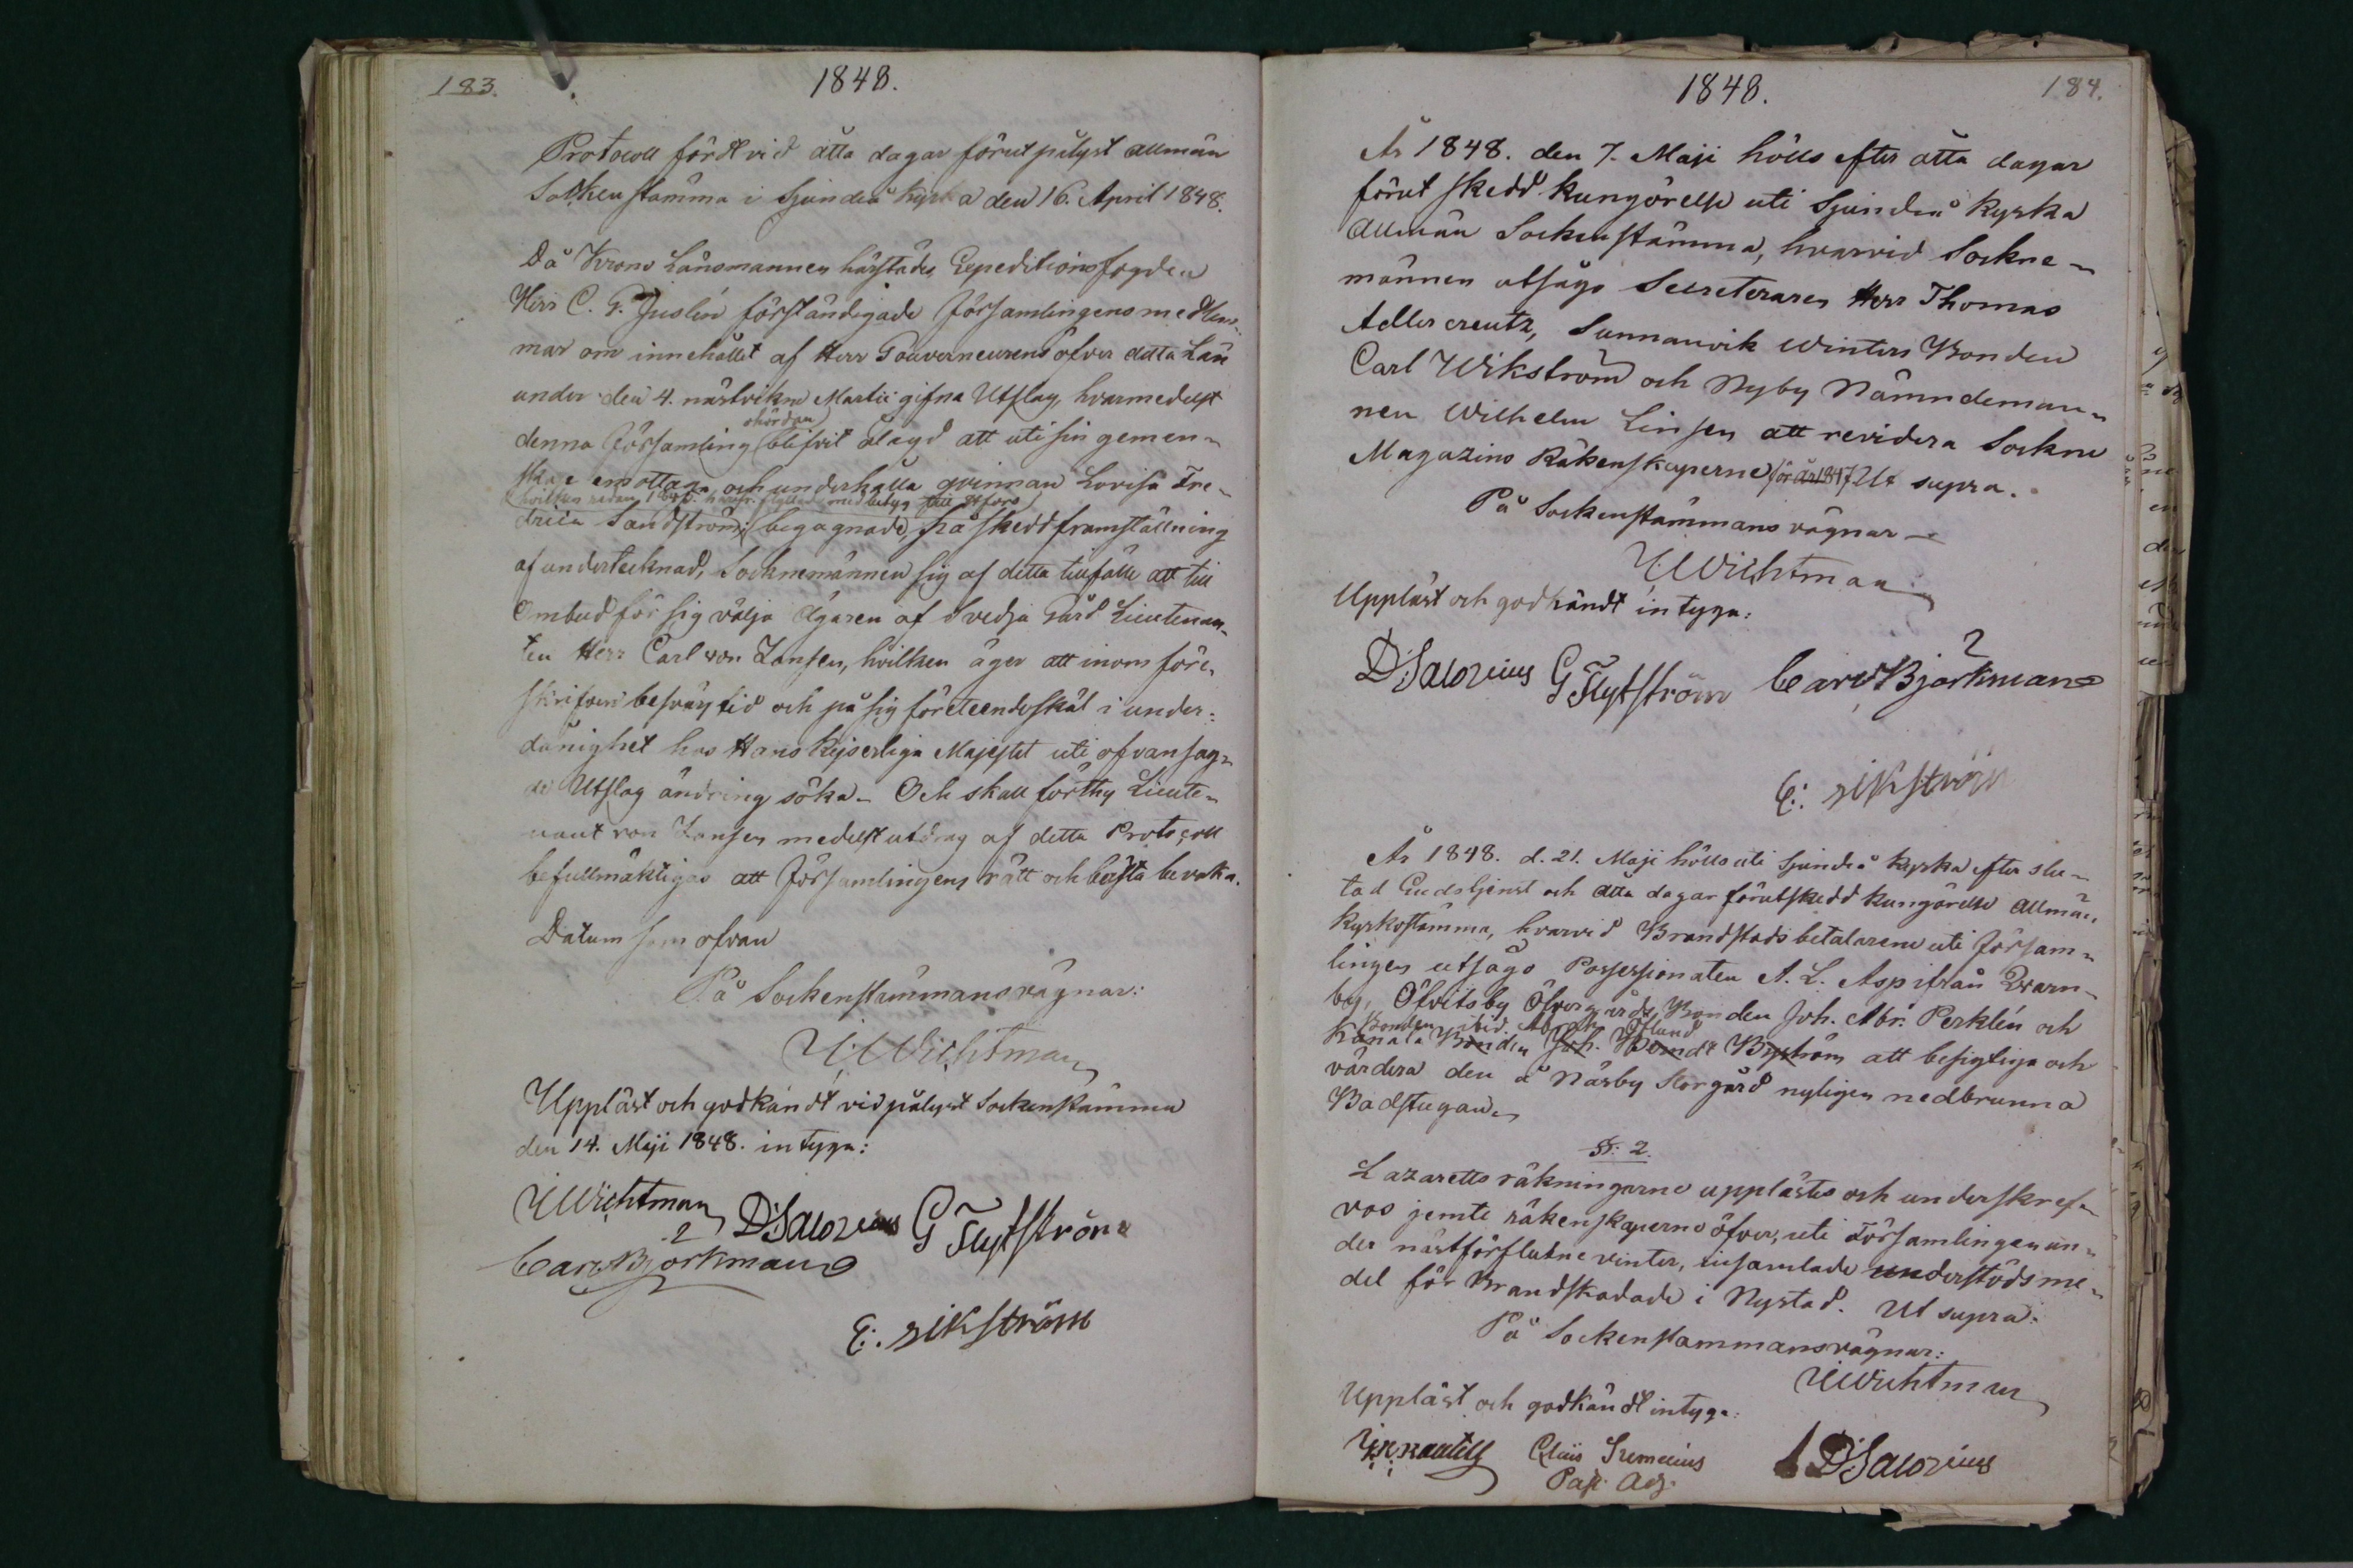 183.
1848.
Protocoll fördt vid åtta dagar förut pålyst allmän
Sockenstämma i Sjundeå kyrka den 16. April 1848.
Då Krono Länsmannen härstädes, Expeditionsfogden
Herr C. G. Juslén förständigade Församlingens medlem-
mar om innehållet af Herr Gouverneurens öfver detta Län
under den 4. nästvikne Martii gifna Utslag, hvarmedelst
ohördan
denna Församling blifvit ålagd att uti sin gemen-
skap emottaga och underhålla qvinnan Lovisa Fre-
hvilken redan härifr. flyttade med betyg
drica Sandström; begagnade, på skedd framställning
af undertecknad, Socknemännen sig af detta tillfälle att till
Ombud för sig välja Ägaren af Svedja Gård Lieutenan-
ten Herr Carl von Zansen, hvilken äger att inom före-
skrifven besvärstid och på sig företeende skäl i under-
dånighet hos Hans Kejserliga Majestet uti ofvansag-
de Utslag ändring söka. Och skall förthy Lieute-
nant von Zansen medelst utdrag af detta Protocoll
befullmäktigas att Församlingens rätt och bästa bevaka.
Datum som ofvan
På Sockenstämmans vägnar:
Wichtman
Uppläst och godkändt vid pålyst Sockenstämma
den 14. Maji 1848. intyga:
Wichtman D Salorius G Flytström
Carl Björkman
E: Wikström
1848.
184.
År 1848. den 7. Maji hölls efter åtta dagar
förut skedd kungörelse uti Sjundeå kyrka
allmän Sockenstämma, hvarvid Sockne-
männen utsågo Secreteraren Herr Thomas
Adlercreutz, Sunnanvik Winters Bonden
Carl Wikström och Nyby Nämndeman-
nen Wilhelm Linsen att revidera Sockne
Magazins Räkenskaperne för år 1847 Ut supra.
På Sockenstämmans vägnar
Wichtman
Uppläst och godkändt intyga:
D Salorius G Flytström Carl Björkman
E: Wikström
År 1848. d. 21. Maji hölls uti Sjundeå kyrka efter slu-
tad Gudstjenst och åtta dagar förutskedd kungörelse allmän
kyrkostämma, hvarvid Brandstods betalarene uti Försam-
lingen utsågo Possessionaten A. L. Asp ifrån Qvarn-
by, Öfvitsby Öfvergårds Bonden Joh. Abr. Perklén och
Bonden ibid. Öflund
Kanala Bonden Joh. Byström att besigtiga och
värdera den å Näsby Storgård nyligen nedbrunna
Badstugan
§: 2.
Lazaretts räkningarne upplästes och underskref-
vos jemte räkenskaperne öfver, uti Församlingen un-
der nästförflutne vinter, insamlade understöds me-
del för Brandskadade i Nystad. Ut supra.
På Sockenstämmans vägnar:
Wichtman
Uppläst och godkändt intyga:
D Salorius
Past. Adj.